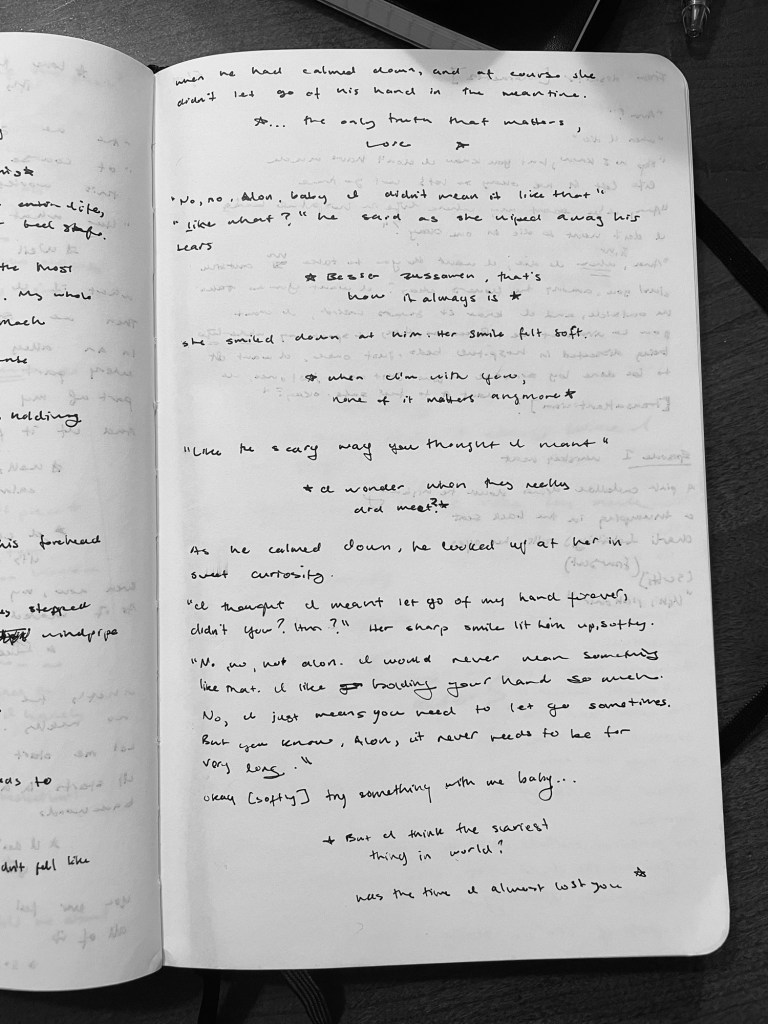 his
entire life,
bed
the most
My whole
holding
his forehead
stepped
windpipe
has to
didn't fell like
when he had calmed down, and of course she
didn't let go of his hand in the meantime.
☆... the only truth that matters,
Love ☆
"No, no, Alon, baby I didn't mean it like that"
"Like what?" he said as she wiped away his
tears
★ Besser zussamen, that's
how it always is ★
she smiled down at him. Her smile felt soft.
★ when I'm with you,
none of it matters anymore ★
"Like the scary way you thought I meant"
★ I wonder when they really
did meet? ★
As he calmed down, he looked up at her in
sweet curiosity.
"I thought I meant let go of my hand forever,
didn't you? Hm?" Her sharp smile lit him up, softly.
"No, no, not alon. I would never mean something
like that. I like holding your hand so much.
No, I just means you need to let go sometimes.
But you know, Alon, it never needs to be for
very long."
okay [softly] try something with me baby...
★ But I think the scariest
thing in world?
was the time I almost lost you ☆